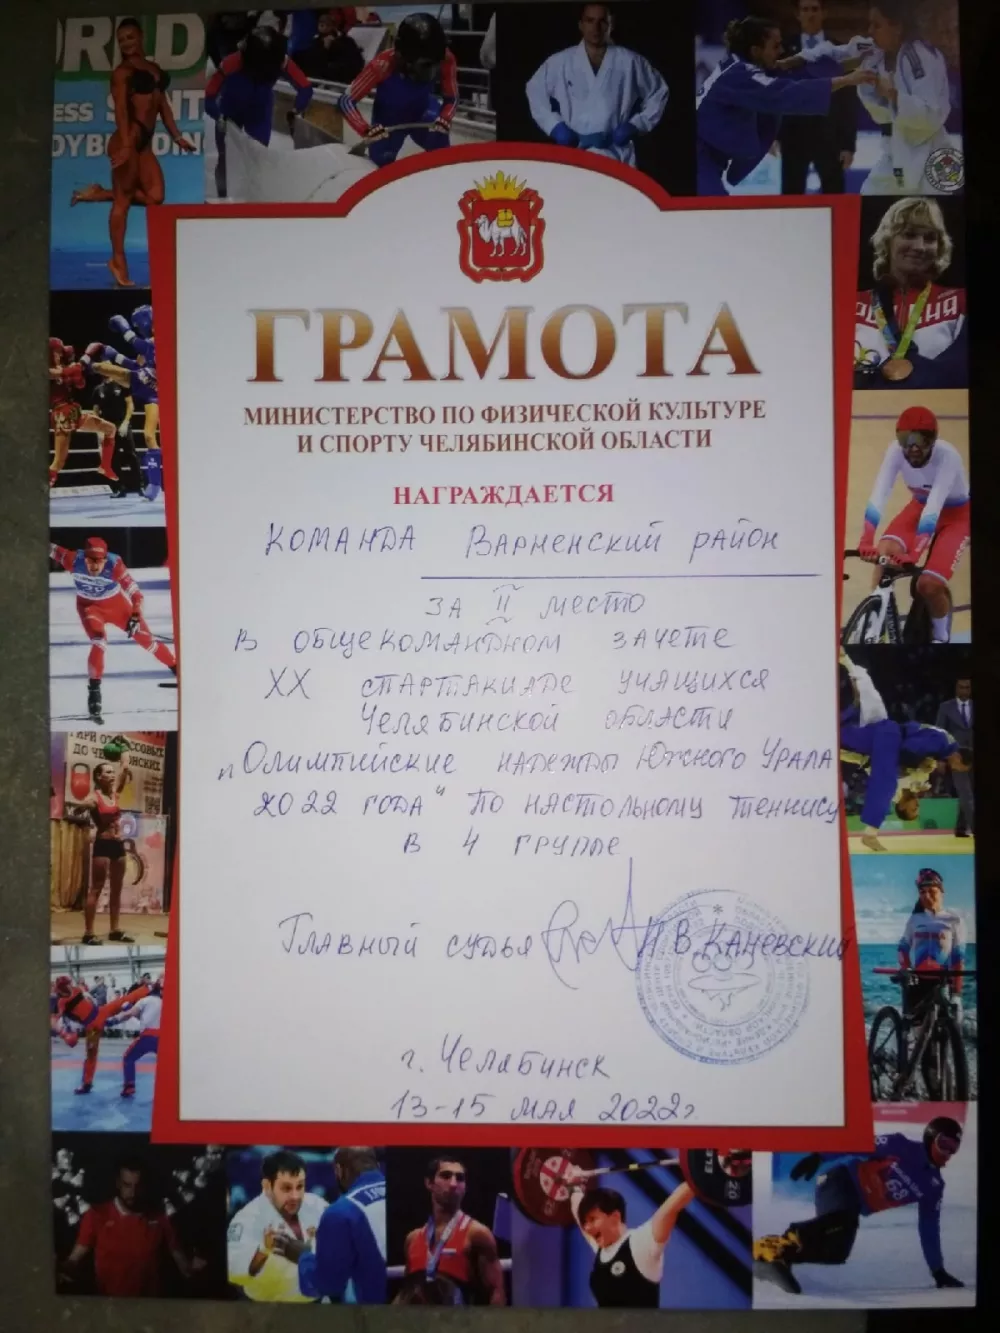 ГРАМОТА
МИНИСТЕРСТВО ПО ФИЗИЧЕСКОЙ КУЛЬТУРЕ
И СПОРТУ ЧЕЛЯБИНСКОЙ ОБЛАСТИ
НАГРАЖДАЕТСЯ
КОМАНДА Варненский район
за II место
в общекомандном зачете
XX спартакиаде учащихся
Челябинской области
„Олимпийские надежды Южного Урала
2022 года" по настольному теннису
в 4 группе
Главный судья И.В. Каневский
г. Челябинск
13-15 мая 2022г.